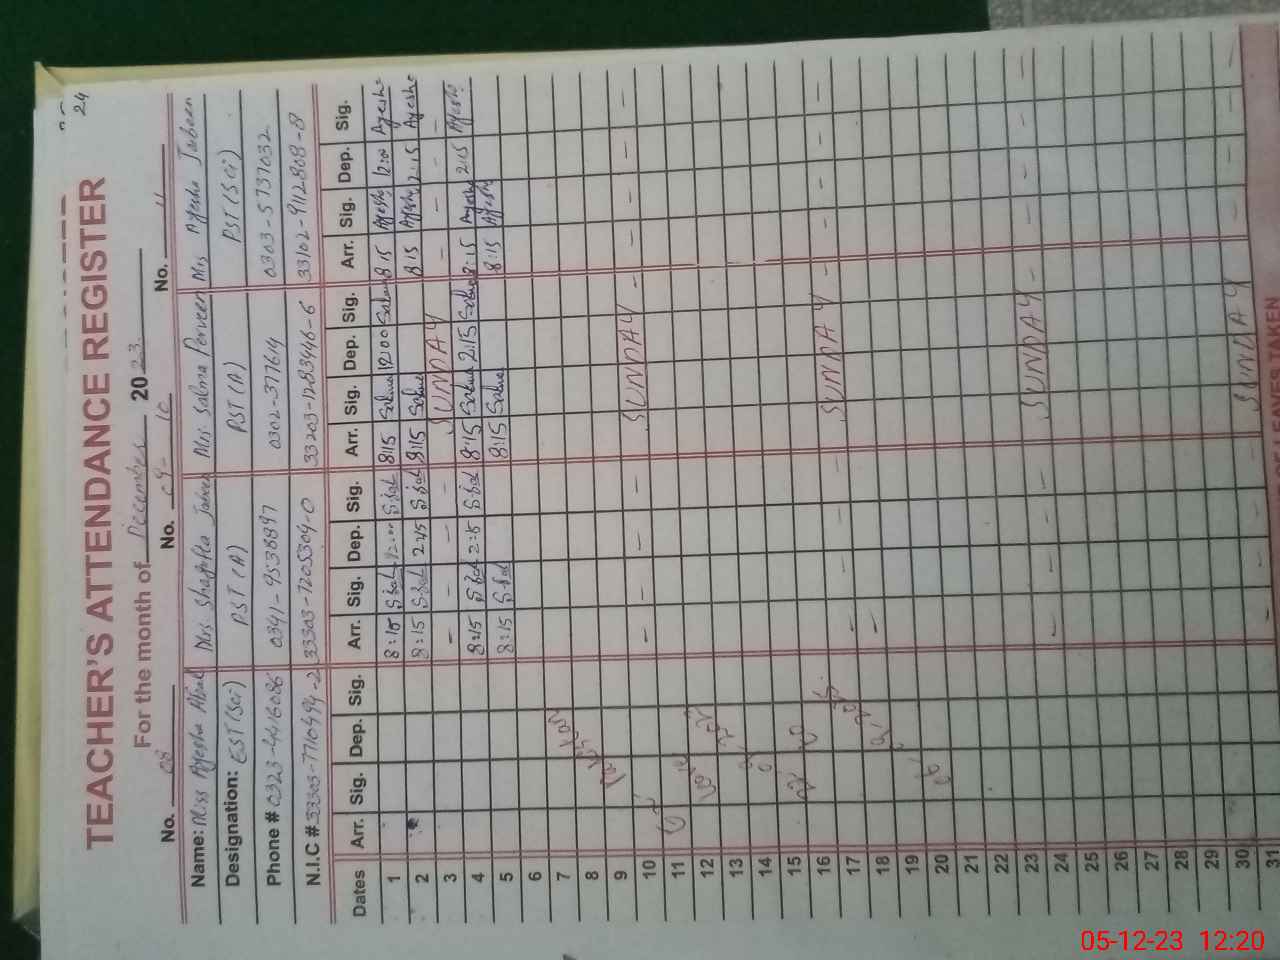 24
TEACHER'S ATTENDANCE REGISTER
For the month of December 2023
No. 08 No. 09- 10 No. 11
Name: Miss Ayesha Mrs. Shagufta Mrs. Salma Perveen Mrs Ayesha Jabeen
Designation: EST (Sci) PST (A) PST (A) PST (Sci)
Phone # 0323-4416086 0341-9538897 0302-377614 0303-5737032
N.I.C # 33303-7710494-2 33303-7205304-0 33203-1283946-6 33102-9112808-8
Dates Arr. Sig. Dep. Sig. Arr. Sig. Dep. Sig. Arr. Sig. Dep. Sig. Arr. Sig. Dep. Sig.
1 8:15 12:00 8:15 Salma 12:00 Salma 8:15 Ayesha 12:00 Ayesha
2 8:15 2:15 8:15 Salma 8:15 Ayesha 2:15 Ayesha
3 - - - - SUNDAY - - - -
4 8:15 2:15 8:15 Salma 2:15 Salma 8:15 Ayesha 2:15 Ayesha
5 8:15 8:15 Salma 8:15 Ayesha
6
7
8
9
10 - - - - SUNDAY - - - -
11
12
13
14
15
16
17 - - - - SUNDAY - - - -
18
19
20
21
22
23
24 - - - - SUNDAY - - - -
25
26
27
28
29
30
31 - - - - SUNDAY - - - -
LEAVES TAKEN
05-12-23 12:20